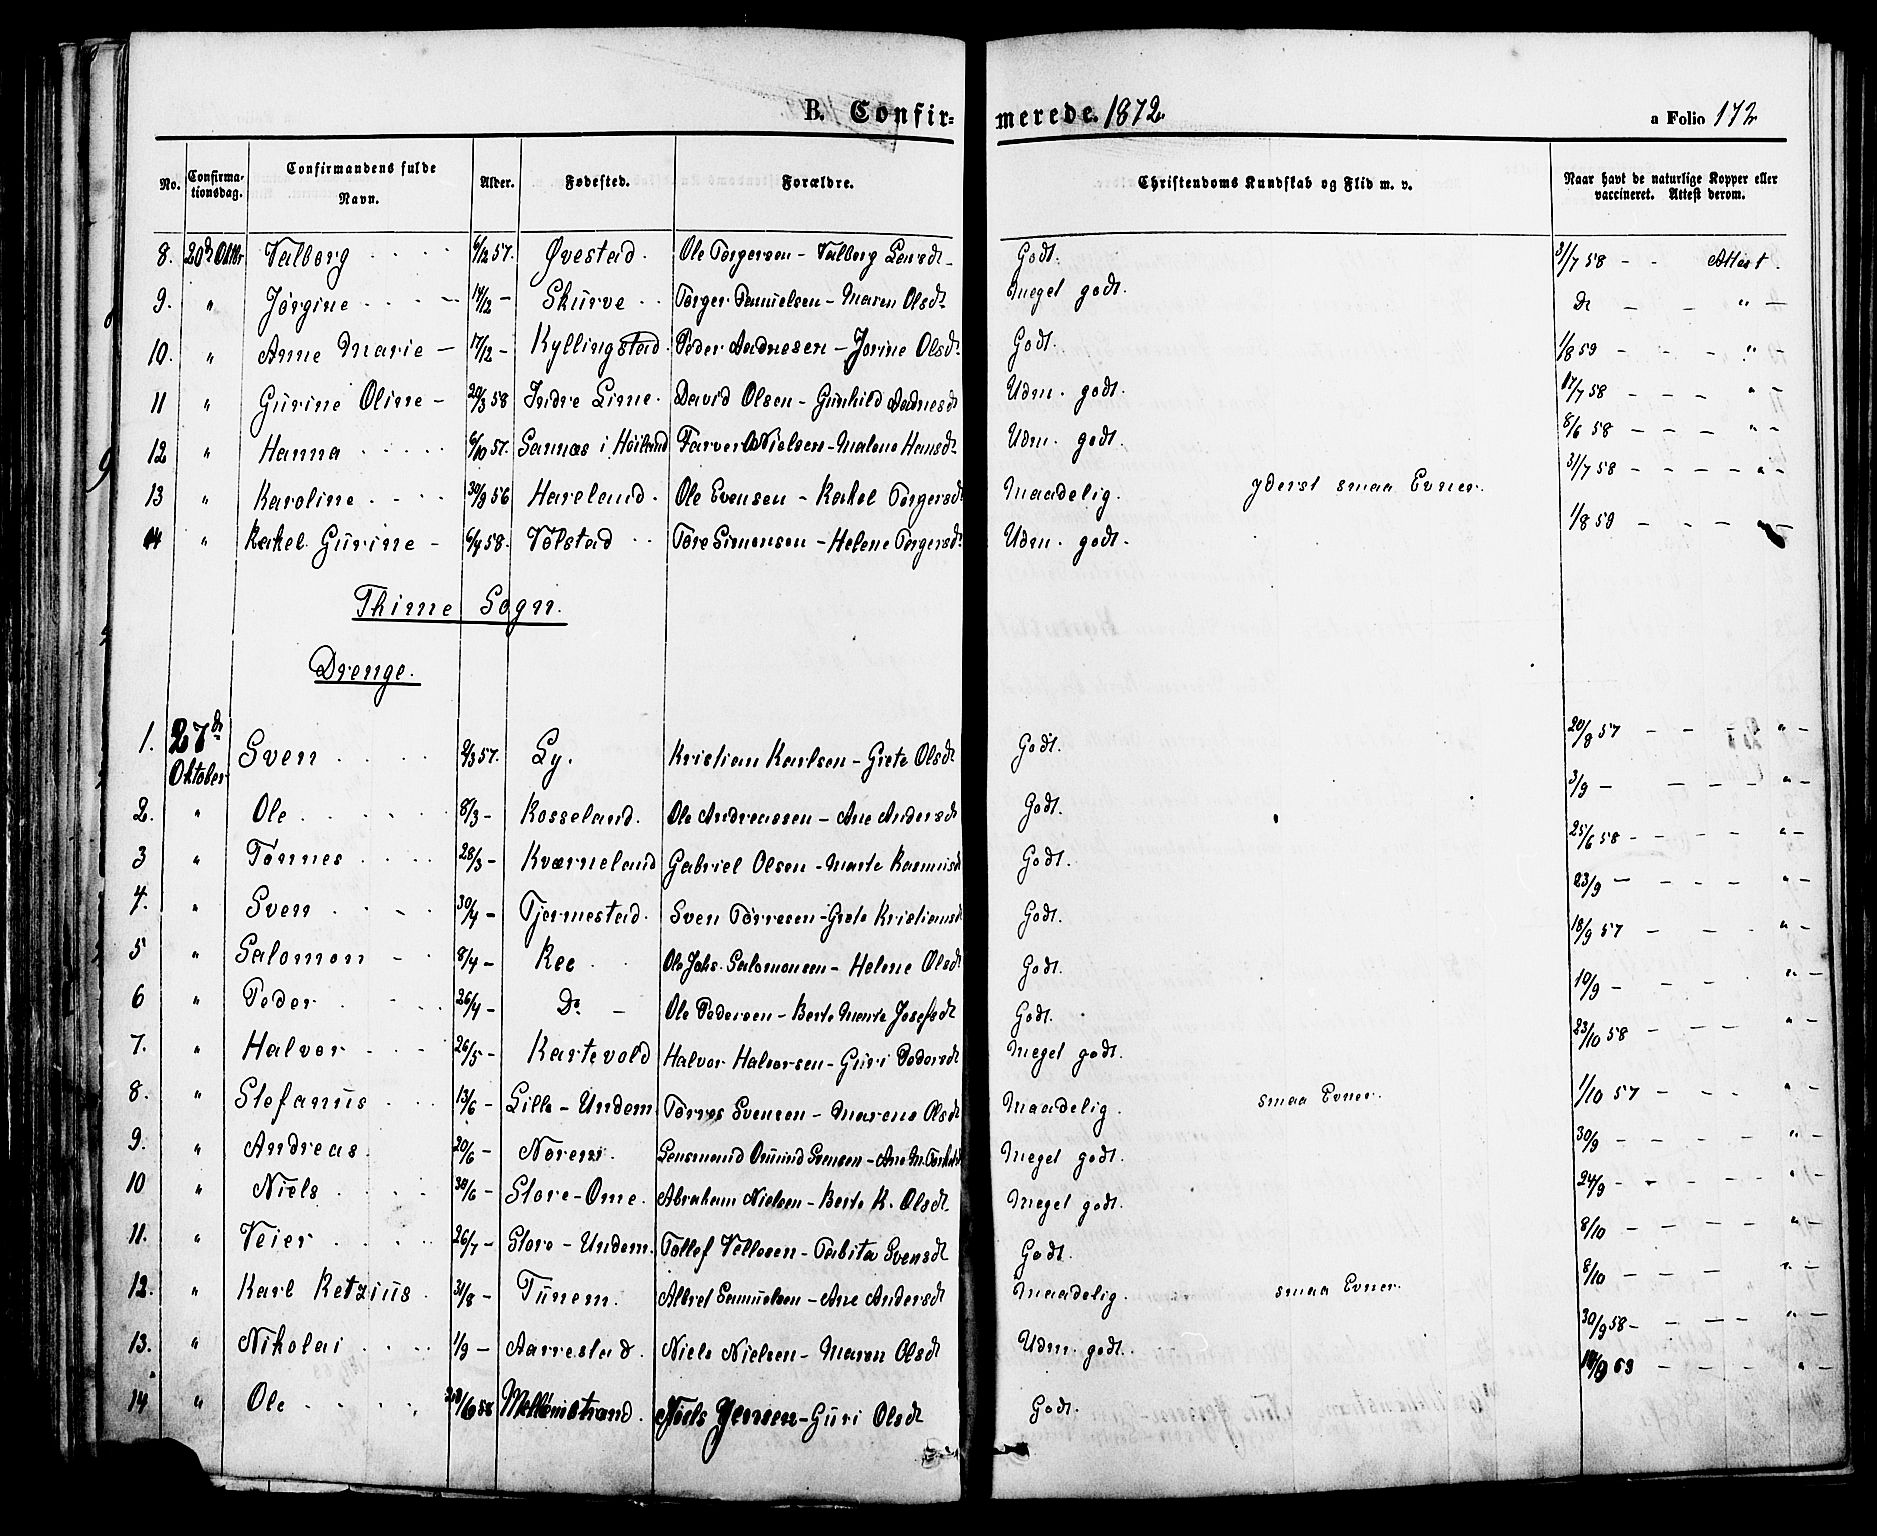 B. Confir= merede. 1872. a Folio 172
No. Confirma-tionsdag. Confirmandens fulde Navn. Alder. Fødested. Forældre. Christendoms Kundskab og Flid m. v. Naar havt de naturlige Kopper eller vaccineret. Attest derom.
8. 20de Oktbr Valborg 6/12 57. Øvestad. Ole Torgersen - Valborg Larsdt Godt. 3/7 58 - - Attest.
9. " Jørgine 14/12 - Skurve Torger Samuelsen - Maren Olsdt Meget godt. Do - - " -
10. " Anne Marie - 17/12 - Kyllingstad. Peder Aadnesen - Jorine Olsdt Godt. 1/8 59 - - " -
11 " Gurine Oline - 20/3 58 Indre Lime. David Olsen - Gunhild Aadnesdt Udm. godt. 17/7 58 - - - " -
12 " Hanna 6/10 57. Sannæs i Høiland Farver Nielsen - Malene Hansdt Udm. godt. 8/6 58 - - - " -
13 " Karoline 30/9 56 Haveland. Ole Evensen - Rakel Torgersdt Maadelig. yderst smaa Evner. 31/7 58 - - - " -
14 " Rakel Gurine - 6/4 58. Vølstad Tore Simonsen - Helene Torgersdt Udm. godt. 1/8 59 - - - " -
Thime Sogn.
Drenge.
1. 27de Oktober Sven 2/3 57. Ly. Kristian Karlsen - Grete Olsdt Godt. 20/8 57 - - " -
2. " Ole 8/3 - Kosseland. Ole Andreassen - Ane Andersdt Godt. 3/9 - - - - " -
3 " Tønnes 28/3 - Kværneland Gabriel Olsen - Marte Rasmusdt Godt. 25/6 58 - - - " -
4. " Sven 30/4 - Tjermestad. Sven Tørresen - Grete Kristiansdt Godt. 23/9 - - - - " -
5 " Salomon 8/4 - Ree Ole Johs. Salomonsen - Helene Olsdt Godt. 18/9 57 - - " -
6 " Peder 26/4 - Do - Ole Pedersen - Berte Marte Josefsdt Godt. 10/9 - - - " -
7. " Halvor 26/5 - Kartevold Halvor Halvorsen - Guri Pedersdt Meget godt. 23/10 58 - - - " -
8. " Stefanus 13/6 - Lille - Undem Tørres Svensen - Marene Olsdt Maadelig. smaa Evner. 1/10 57 - - - " -
9. " Andreas. 20/6 - Norem. Lensmand Omund Svensen - Ane M. Meget godt. 30/9 - - - - " -
10 " Niels 30/6 - Store - Ome. Abraham Nielsen - Berte K. Olsdt Meget godt. 24/9 - - - - " -
11. " Veier 26/7 - Store - Undem. Tollef Vellesen - Tabita Svensdt Godt. 8/10 - - - - " -
12. " Karl Retzius 31/8 - Tunem. Albret Samuelsen - Ane Andersdt Maadelig. smaa Evner. 8/10 - - - - " -
13. " Nikolai 1/9 - Aarrestad. Niels Nielsen - Maren Olsdt Udm. godt. 30/9 58 - - - " -
14 " Ole 58 Mellemstrand. Niels Jensen - Guri Olsdt Godt. 63 - - - " -